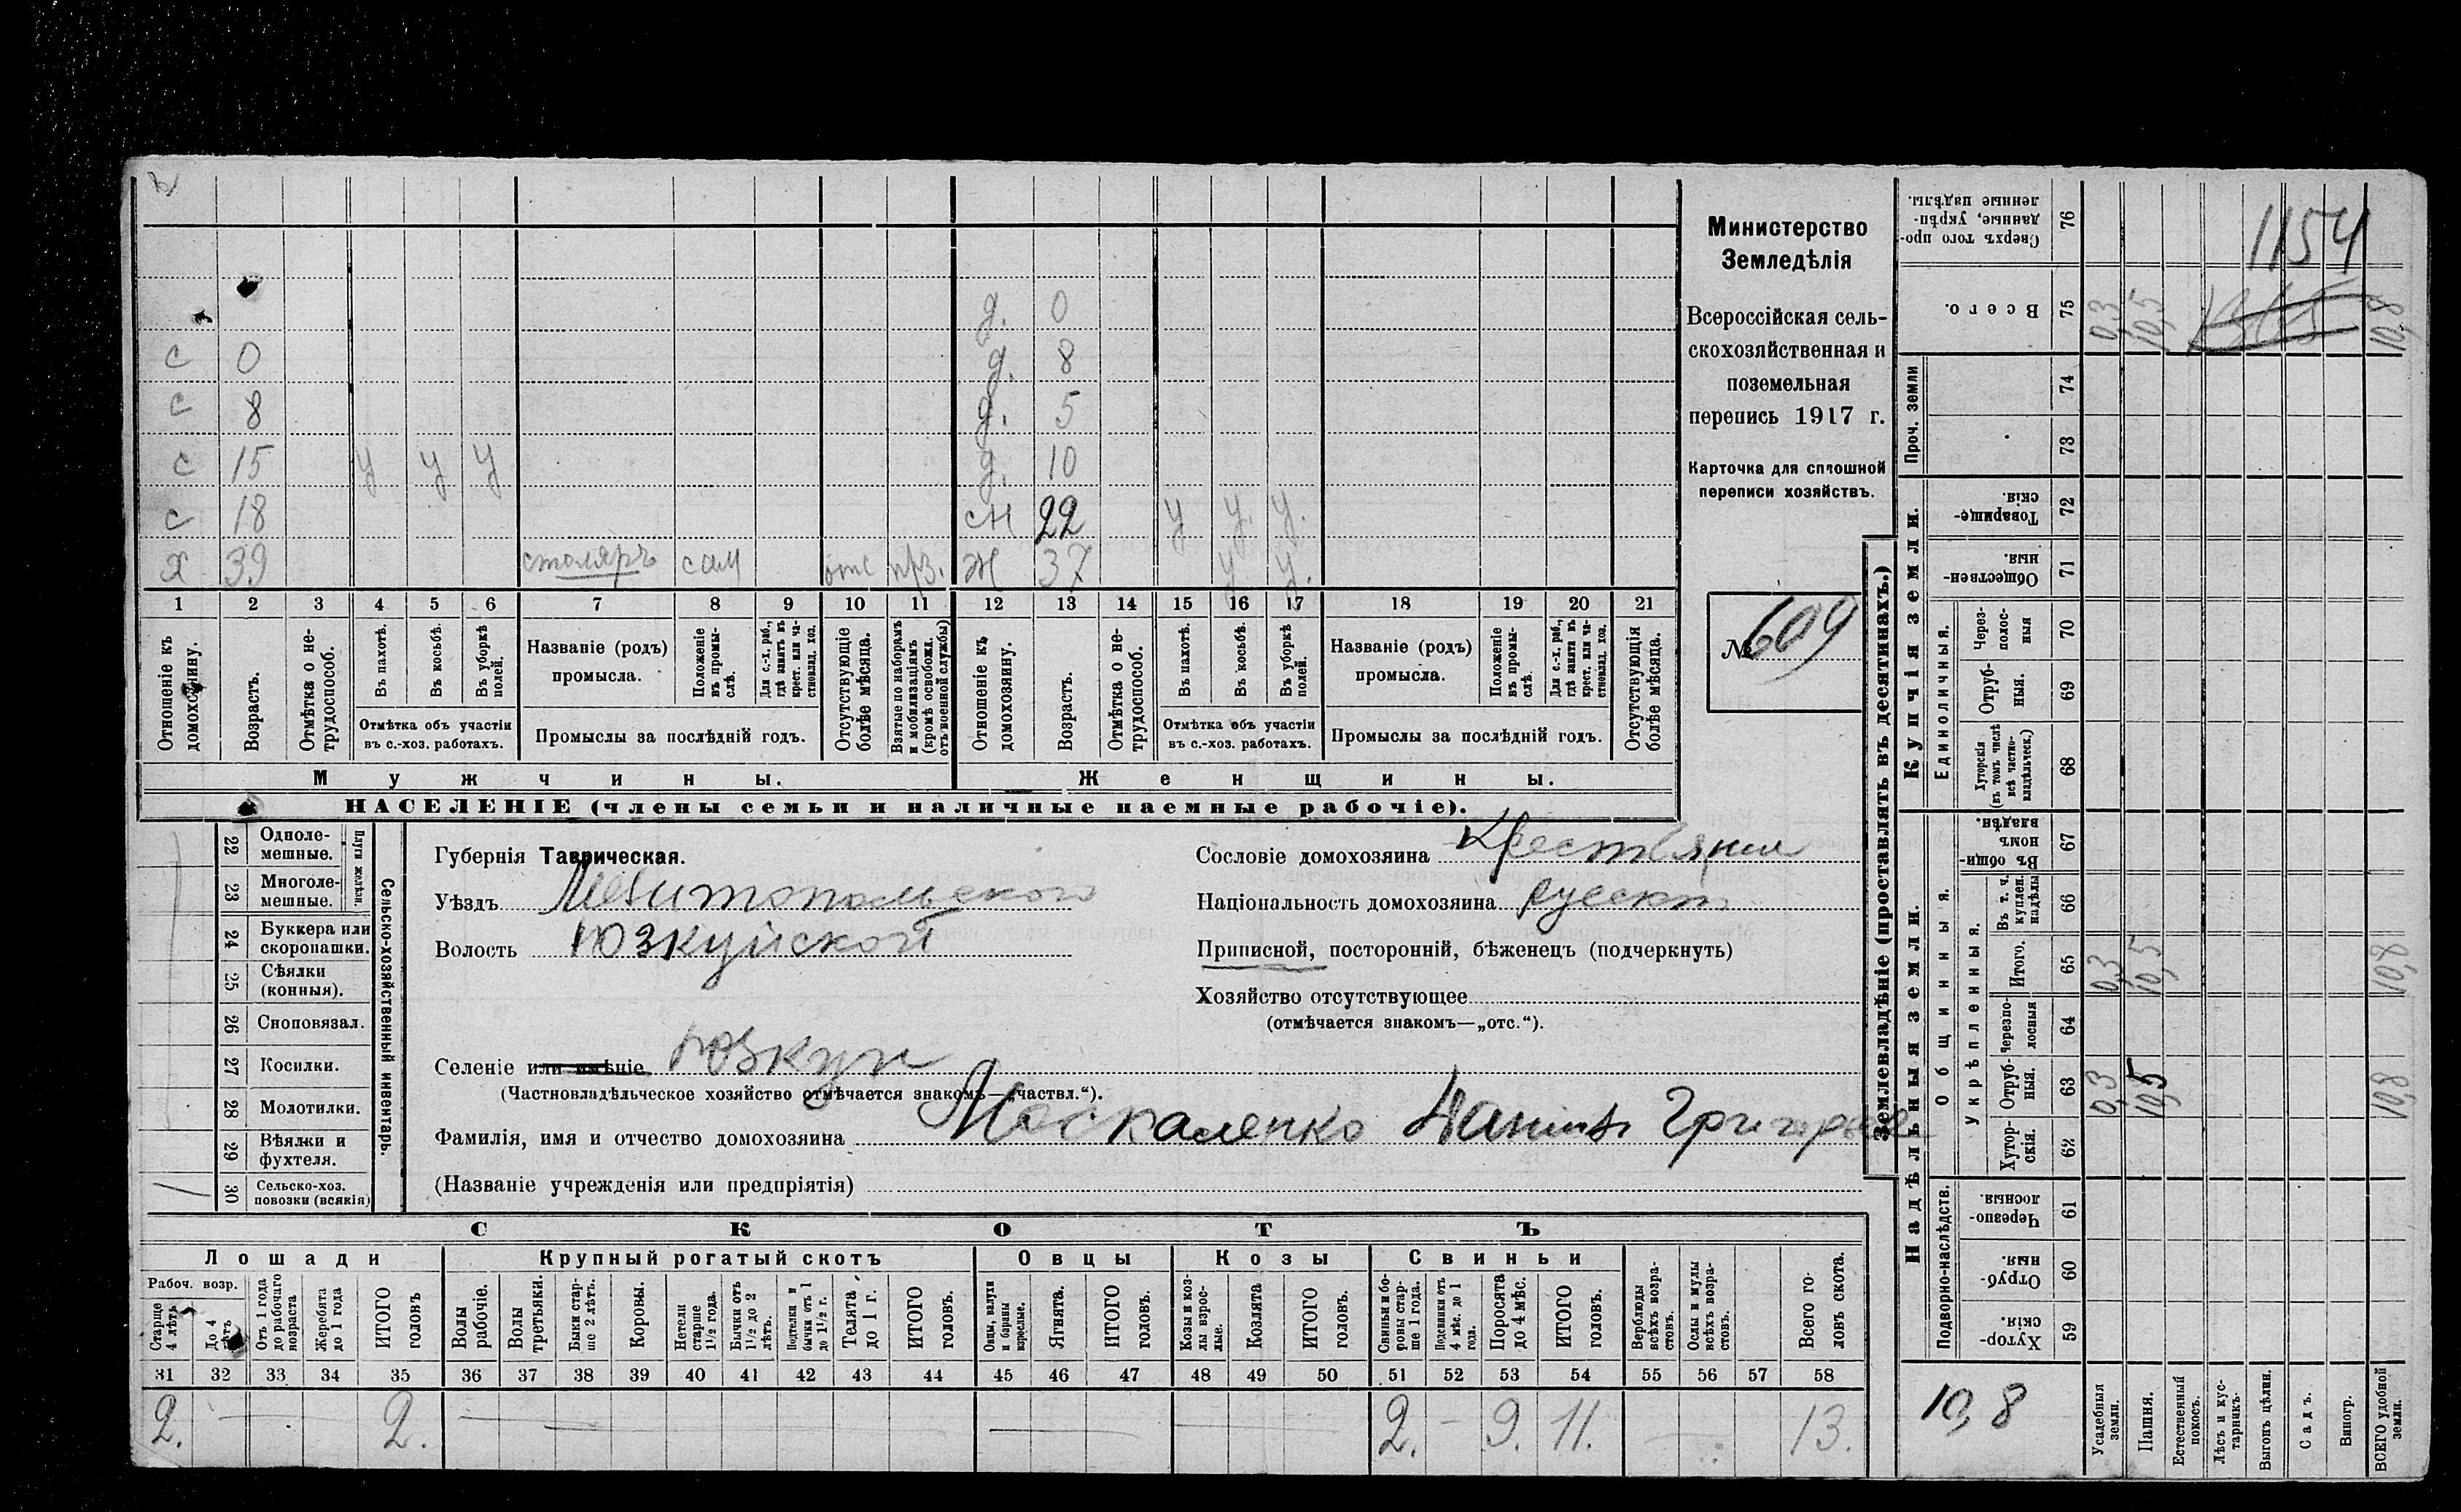 1154
Министерство
Земледѣлія
Всероссійская сель-
скохозяйственная и
поземельная
перепись 1917 г.
Карточка для сплошной
переписи хозяйствъ.
№ 609
д. 0
с 0 д. 8
с 8 д. 5
с 15 у у у д. 10
с 18 сн 22 у у. у.
х 39 столяръ сам отс ж 37 у у.
1 2 3 4 5 6 7 8 9 10 11 12 13 14 15 16 17 18 19 20 21
Отношеніе къ домохозяину.
Возрастъ.
Отмѣтка о не-трудоспособ.
Въ пахотѣ.
Въ косьбѣ.
Въ уборкѣ полей.
Отмѣтка объ участіи
въ с.-хоз. работахъ.
Названіе (родъ)
промысла.
Положеніе въ промы-слѣ.
Для с.-х. раб., гдѣ занятъ въ крест. или ча-стновлад. хоз.
Промыслы за послѣдній годъ.
Отсутствующіе болѣе мѣсяца.
Взятые по наборамъ и мобилизаціямъ (кромѣ освобожд. отъ военной службы)
Отношеніе къ домохозяину.
Возрастъ.
Отмѣтка о не-трудоспособ.
Въ пахотѣ.
Въ косьбѣ.
Въ уборкѣ полей.
Отмѣтка объ участіи
въ с.-хоз. работахъ.
Названіе (родъ)
промысла.
Положеніе въ промы-слѣ.
Для с.-х. раб., гдѣ занята въ крест. или ча-стновлад. хоз.
Промыслы за послѣдній годъ.
Отсутствующія болѣе мѣсяца.
Мужчины. Женщины.
НАСЕЛЕНІЕ (члены семьи и наличные наемные рабочіе).
22 Одноле-мешные.
23 Многоле-мешные.
Плуги желѣзн.
24 Буккера или скоропашки.
25 Сѣялки (конныя).
26 Сноповязал.
27 Косилки.
28 Молотилки.
29 Вѣялки и фухтеля.
30 Сельско-хоз. повозки (всякія)
Сельско-хозяйственный инвентарь.
Губернія Таврическая.
Уѣздъ Мелитопольского
Волость Юзкуйской
Селеніе или имѣніе Юзкуи
(Частновладѣльческое хозяйство отмѣчается знакомъ—„частвл.“).
Фамилія, имя и отчество домохозяина Москаленко Данiилъ Григорьев
(Названіе учрежденія или предпріятія)
Сословіе домохозяина Крестьянин
Національность домохозяина русскій
Приписной, посторонній, бѣженецъ (подчеркнуть)
Хозяйство отсутствующее
(отмѣчается знакомъ—„отс.“).
СКОТЪ
Лошади Крупный рогатый скотъ Овцы Козы Свиньи
Рабоч. возр.
Старше 4 лѣтъ
До 4 лѣтъ
Отъ 1 года до рабочаго возраста
Жеребята до 1 года
ИТОГО головъ
Волы рабочіе.
Волы третьяки.
Быки стар-ше 2 лѣтъ.
Коровы.
Нетели старше 1½ года.
Бычки отъ 1½ до 2 лѣтъ.
Подтелки и бычки отъ 1 до 1½ г.
Телята до 1 г.
ИТОГО головъ.
Овцы, валухи и бараны взрослые.
Ягнята.
ИТОГО головъ.
Козы и коз-лы взрос-лые.
Козлята
ИТОГО головъ.
Свиньи и бо-ровы стар-ше 1 года.
Подсвинки отъ 4 мѣс. до 1 года.
Поросята до 4 мѣс.
ИТОГО головъ.
Верблюды всѣхъ возра-стовъ.
Ослы и мулы всѣхъ возра-стовъ.
Всего го-ловъ скота.
31 32 33 34 35 36 37 38 39 40 41 42 43 44 45 46 47 48 49 50 51 52 53 54 55 56 57 58
2. — 2. — — — 2. — 9. 11. 13.
Землевладѣніе (проставлять въ десятинахъ.)
Купчія земли.
Надѣльныя земли.
Сверхъ того про-данные, укрѣп-ленные надѣлы. 76
Всего. 75 0,3 10,5 10,8
Проч. земли
74
73
Товарище-скія. 72
Обществен-ныя. 71
Единоличныя.
Через-полос-ныя 70
Отруб-ныя. 69
Хуторскія (въ томъ числѣ всѣ частно-владѣльческ.) 68
Общинныя.
Въ общин-номъ владѣн. 67
Укрѣпленныя.
Въ т. ч. куплен. надѣлы 66
Итого. 65 0,3 10,5 10,8
Черезпо-лосныя 64
Отруб-ныя. 63 0,3 10,5 10,8
Хутор-скія. 62
Подворно-наслѣдств.
Черезпо-лосныя 61
Отруб-ныя. 60
Хутор-скія 59
10,8
Усадебныя земли.
Пашня.
Естественный покосъ.
Лѣсъ и кус-тарникъ.
Выгонъ цѣлин.
Садъ.
Виногр.
ВСЕГО удобной земли.